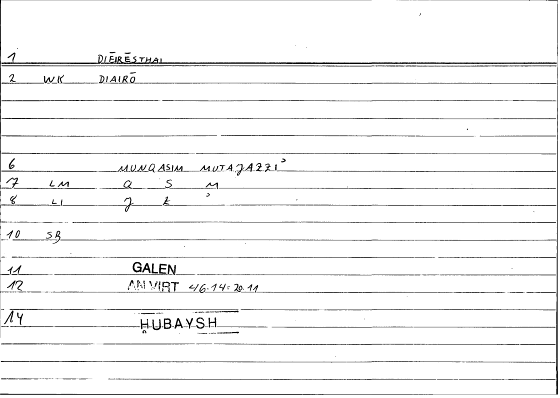 1 DIĒIRĒSTHAI
2 WK DIAIRŌ
6 MUNQASIM MUTAJAZZIʾ
7 LM Q S M
8 LI J Z ʾ
10 SB
11 GALEN
12 AN VIRT 46.14=20.11
14 ḤUBAYSH